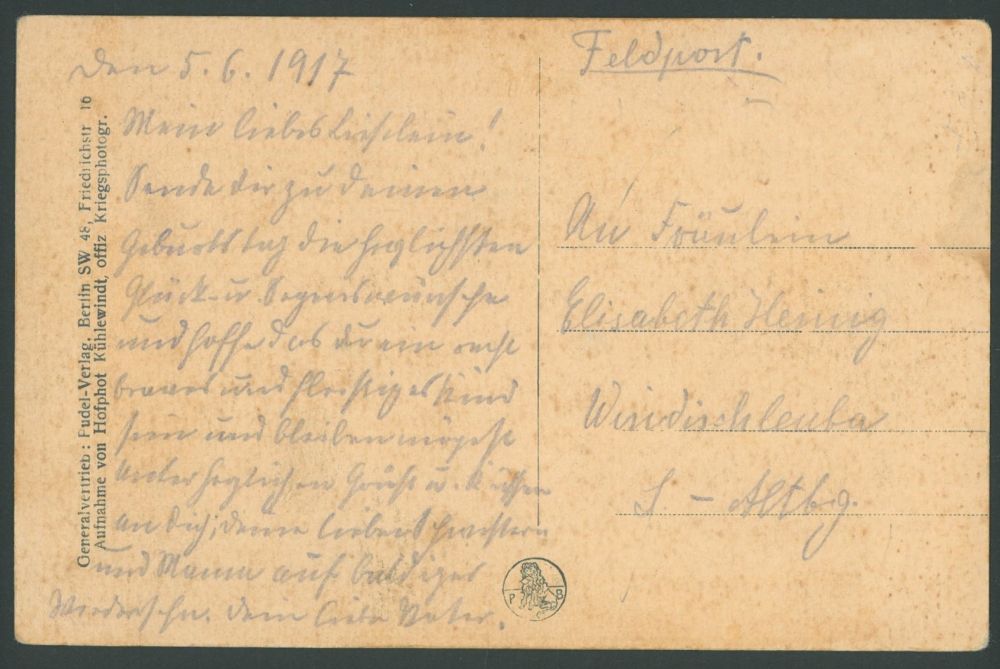 Den 5. 6. 1917
Mein liebes Lieslein!
Sende Dir zu Deinem
Geburtstag die herzlichsten
Glück- u. Segenswünsche
und hoffe das du ein recht
braves und fleissiges Kind
sein und bleiben mögest
Unter herzlichen Grüße u. Küssen
an Dich, deine lieben Schwestern
und Mama auf baldiges
Wiedersehn. Dein lieber Vater.
Feldpost.
An Fräulein
Elisabeth Heinig
Windischleuba
S. - Altbg.
Generalvertrieb: Fudel-Verlag, Berlin SW 48, Friedrichstr 16
Aufnahme von Hofphot Kühlewindt, offiz Kriegsphotogr.
P B